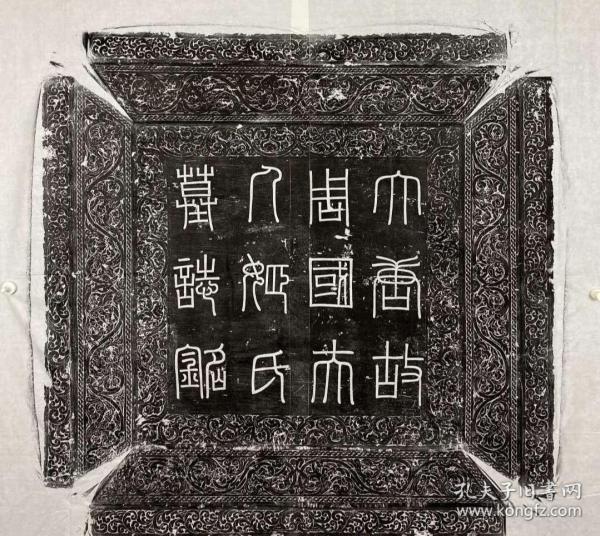 大唐故
周國夫
人姬氏
墓誌銘
孔夫子旧书网
www.kongfz.com